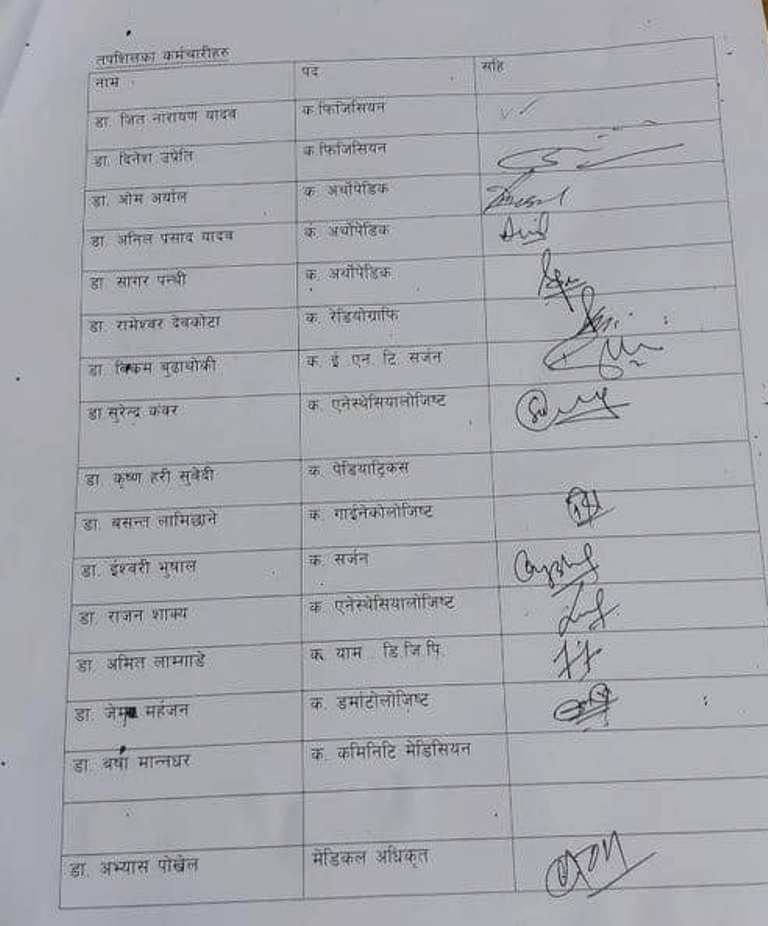 तपशिलका कर्मचारीहरु
नाम पद सहि
डा. जित नारायण यादव क.फिजिसियन
डा. दिनेश उप्रेति क.फिजिसियन
डा. ओम अर्याल क. अर्थोपेडिक
डा. अनिल प्रसाद यादव क. अर्थोपेडिक
डा. सागर पन्थी क. अर्थोपेडिक
डा. रामेश्वर देवकोटा क. रेडियोग्राफि
डा. विक्रम बुढाथोकी क. ई. एन. टि. सर्जन
डा सुरेन्द्र कंवर क. एनेस्थेसियालोजिष्ट
डा. कृष्ण हरी सुवेदी क. पेडियाट्रिकस
डा. बसन्त लामिछाने क. गाईनेकोलोजिष्ट
डा. ईश्वरी भुषाल क. सर्जन
डा. राजन शाक्य क. एनेस्थेसियालोजिष्ट
डा. अमित लामगाडे क. याम . डि.जि.पि.
डा. महर्जन क. डर्माटोलोजिष्ट
डा. वर्षा मानन्धर क. कमिनिटि मेडिसियन
डा. अभ्यास पोखेल मेडिकल अधिकृत